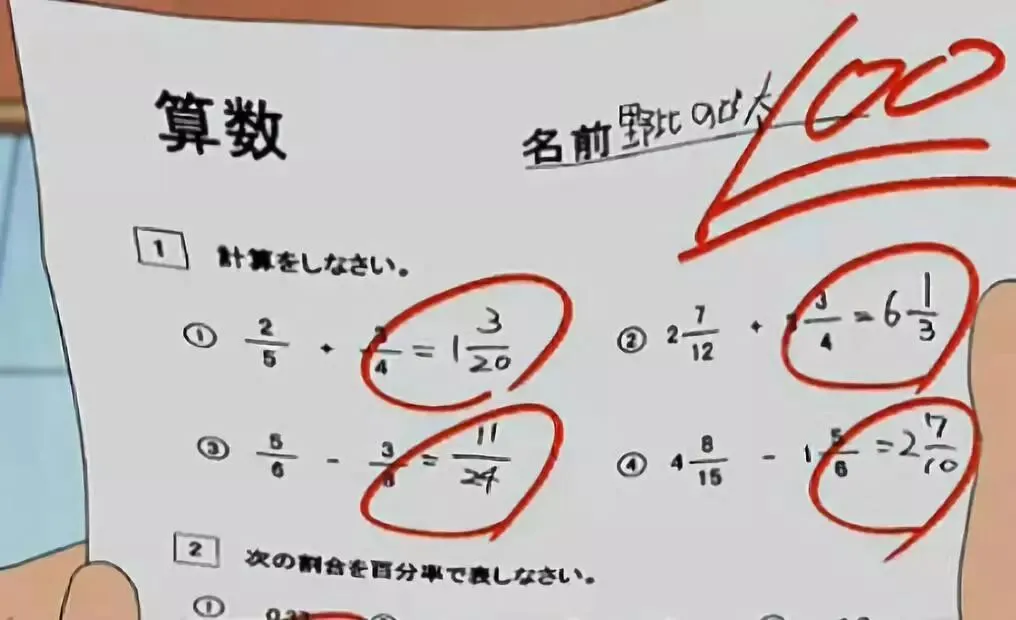 算数 名前 野比のび太 100
1 計算をしなさい。
① 2/5 + 3/4 = 1 3/20 ② 2 7/12 + 3 3/4 = 6 1/3
③ 5/6 - 3/8 = 11/24 ④ 4 8/15 - 1 5/6 = 2 7/10
2 次の割合を百分率で表しなさい。
①